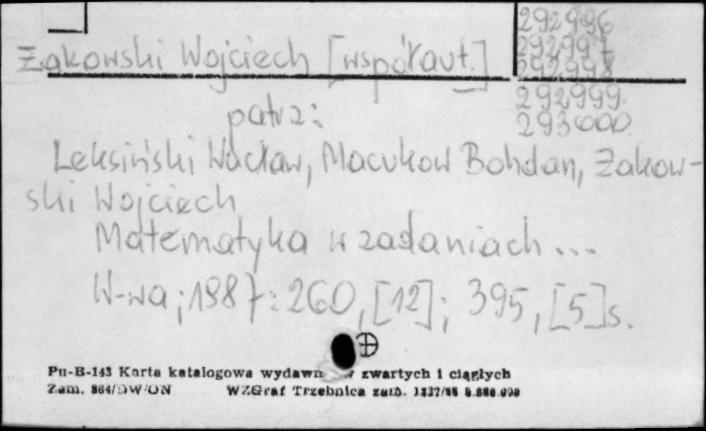 292996
292997
Żakowski Wojciech [współaut.] 292998
292999
patrz: 293000
Leksiński Wacław, Macukow Bohdan, Żakow-
ski Wojciech
Matematyka w zadaniach...
W-wa; 1987: 260, [12]; 395, [5]s.
Pu-B-143 Karta katalogowa wydawn zwartych i ciągłych
Zam. 864/DW/ON WZGraf Trzebnica zam.